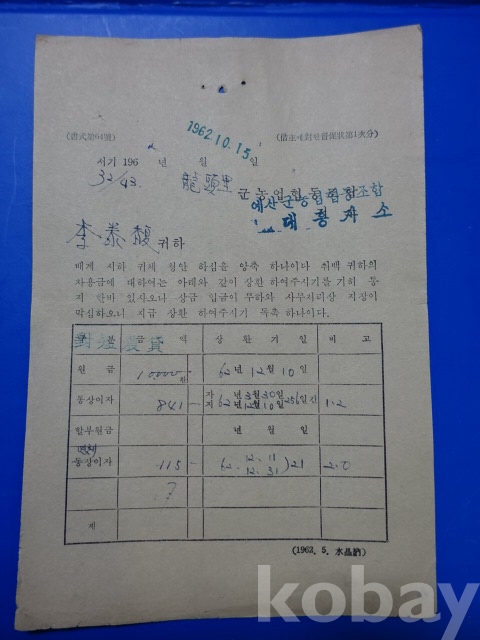 (書式第64號) (借主에對한督促狀第1次分)
1962.10.15
서기 196 년 월 일
32/43. 龍頭里 군농업협동조합
예산군농업협동조합
대흥지소
李泰馥 귀하
배계 시하 귀체 청안 하심을 앙축 하나이다 취백 귀하의
차용금에 대하여는 아래와 같이 상환 하여주시기를 기히 통
지 한바 있사오니 상금 입금이 무하와 사무처리상 지장이
막심하오니 지급 상환 하여주시기 독촉 하나이다.
구분 금 액 상 환 기 일 비 고
원 금 10,000원 62년 12월 10일
동상이자 841 자 년 3월 30일 지 62년 12월 10일 256일간 1.2
할부원금 년 월 일
동상이자 115 62. 12. 11 12. 31 )21 2.0
?
계
(1962. 5. 水晶納)
kobay